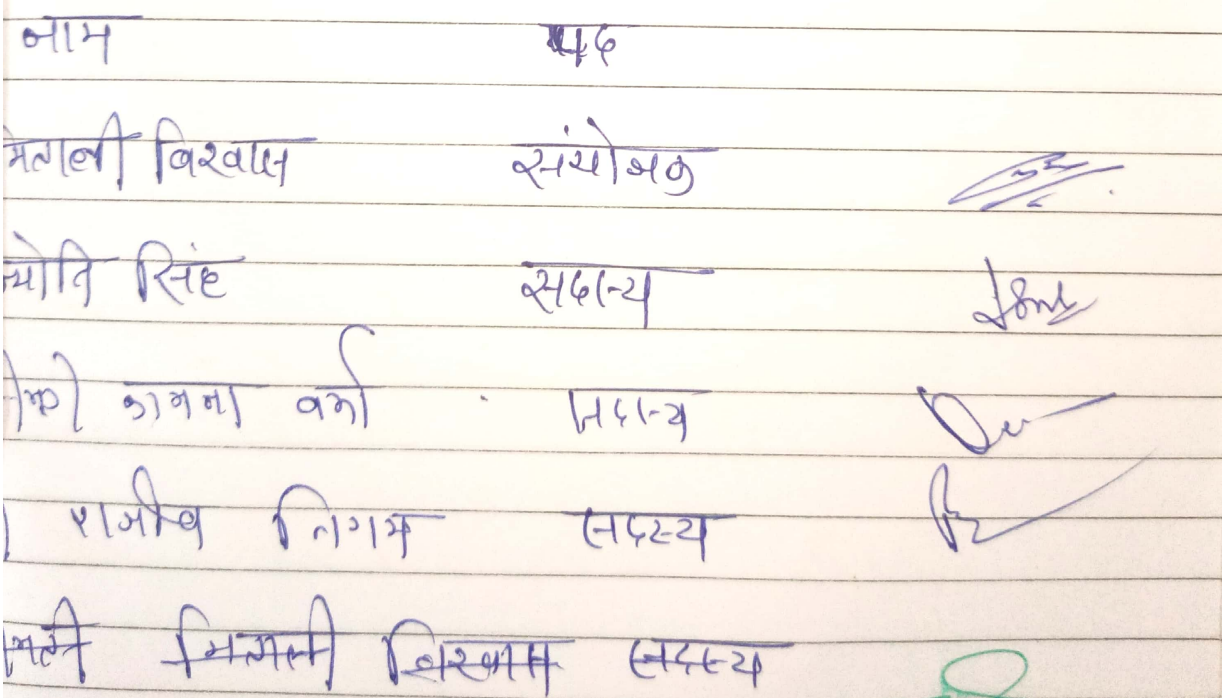 नाम पद
मिताली विश्वास संयोजक
ज्योति सिंह सदस्य
कामना वर्मा सदस्य
राजीव निगम सदस्य
मिताली विश्वास सदस्य